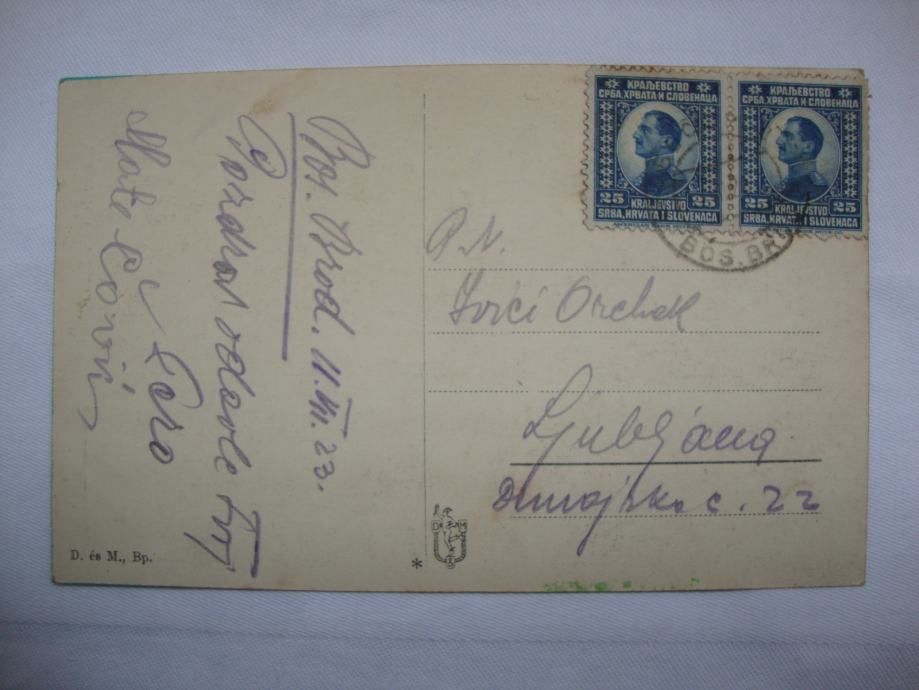 КРАЉЕВСТВО
СРБА, ХРВАТА И СЛОВЕНАЦА
25 25
KRALJEVSTVO
SRBA, HRVATA I SLOVENACA
КРАЉЕВСТВО
СРБА, ХРВАТА И СЛОВЕНАЦА
25 25
KRALJEVSTVO
SRBA, HRVATA I SLOVENACA
BOS. BR
Bos. Brod. 11.VI.23.
Pozdrav odavle
Pero
Mate Ćorić
P. N.
Ivici Orehek
Ljubljana
c. 22
D. és M., Bp.
*